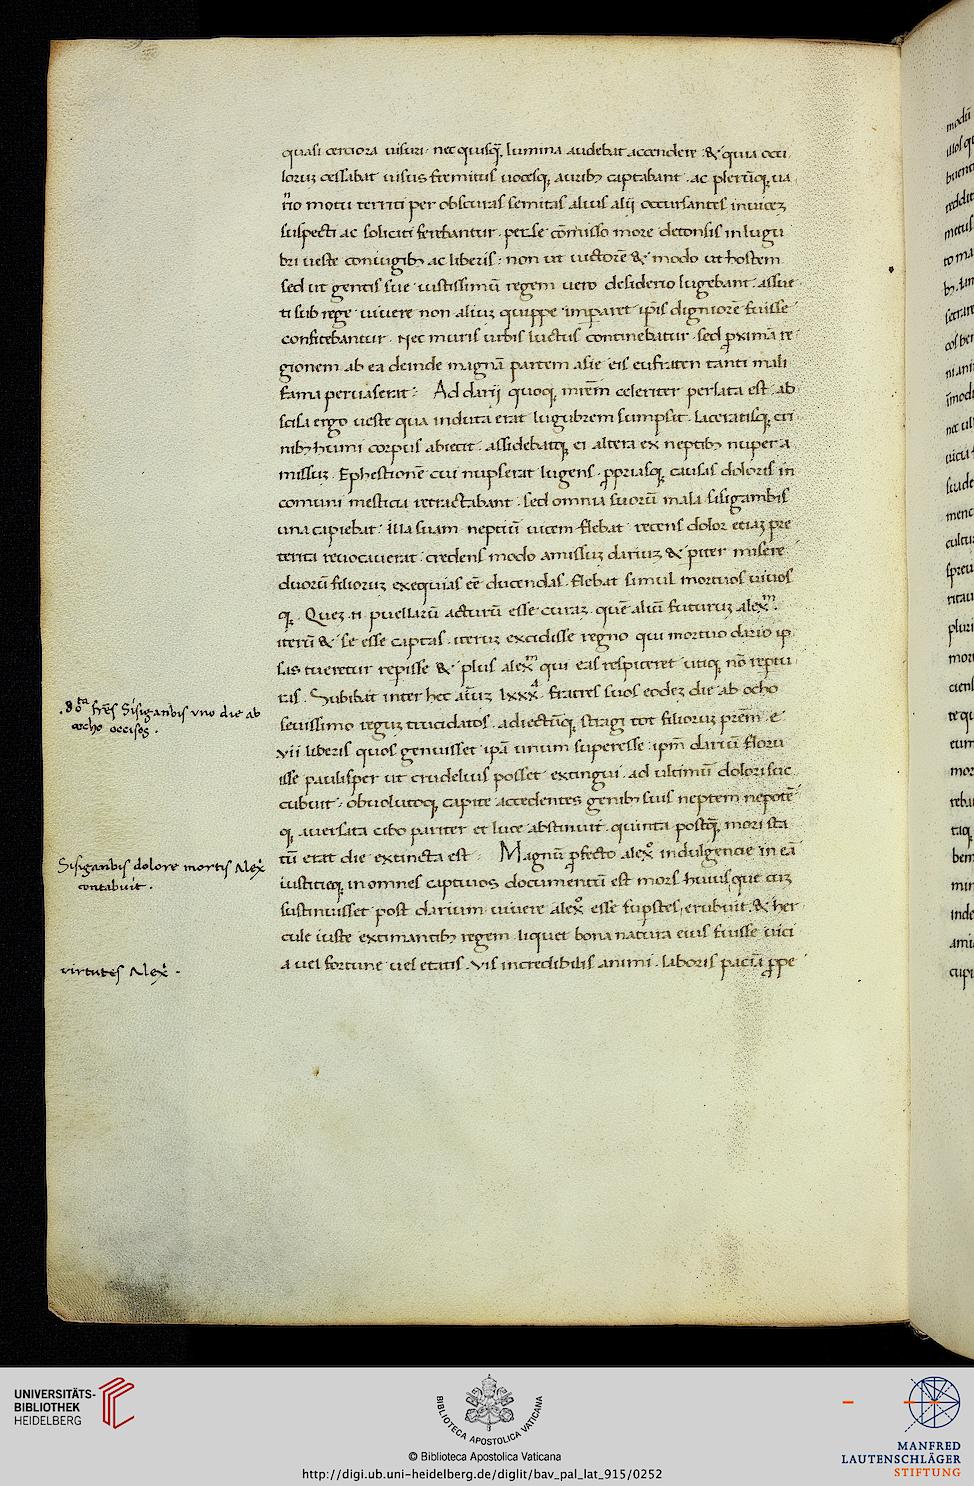 quasi certiora uisuri · nec quisq̃, lumina audebat accendere · & quia ocu
lorux cessabat uisus fremitus uocesq, auribʒ captabant · ac plerũq, ua
ño motu territi per obscuras semitas alius alij occursantes inuicex
suspecti ac soliciti ferebantur · perse cõmisso more detonsis in lugu
bri ueste coniugibʒ ac liberis · non ut uictorẽ & modo ut hostem
sed ut gentis sue iustissimũ regem uero desiderio lugebant · assue
ti sub rege uiuere non alium quippe imparet ip̃is digniorẽ fuisse
confitebantur · Nec muris urbis luctus continebatur · sed p̱ximã re
gionem ab ea deinde magnã partem asie eis eufraten tanti mali
fama peruaserat : Ad darij quoq, mr̃em celeriter perlata est · ab
scisa ergo ueste qua induta erat lugubrem sumpsit · laceratisq, cri
nibʒ humi corpus abiecit · assidebatq, ei altera ex neptibʒ nuper a
missux Ephestionẽ cui nupserat lugens · p̱priasq, causas doloris in
comuni mesticia retractabant · sed omnia suorũ mala sisigambis
una capiebat · Illa suam neptiũ uicem flebat · recens dolor etiax pre
terita reuocauerat · credens modo amissux dariux & p̃iter misere
duorũ filiorux exequias eẽ ducendas · flebat simul mortuos uiuos
q, · Quex .n. puellarũ acturũ esse curax · quẽ aliũ futurux alexᵐ.
iterũ & se esse captas · iterux excidisse regno qui mortuo dario ip
sas tueretur repisse & plus alexᵐ qui eas respiceret utiq, nõ reptu
ras · Subibat inter hec aĩux lxxxᵗᵃ fratres suos eodex die ab ocho
seuissimo regux trucidatos · adiectũq, stragi tot filiorux pr̃em · e
vii liberis quos genuisset ip̃a unum superesse · ip̃m dariũ floru
isse paulisper ut crudelius posset extingui · ad ultimũ dolori suc
cubuit · obuolutoq, capite accedentes genibʒ suis neptem nepotẽ
q, auersata cibo pariter et luce abstinuit · quinta postq̃, mori sta
tũ erat die extincta est · Magnũ p̱fecto alex° indulgencie in eã
iusticieq, in omnes captiuos documentũ est mors huius que cux
sustinuisset post darium uiuere alex° esse sup̱stes erubuit · & her
cule iuste extimantibʒ regem · liquet bona natura eius fuisse uici
a uel fortune uel etatis · vis incredibilis animi · laboris paciã p̱pe
· 80ᵗᵃ fr̃es Sisiganbis vno die ab
ocho occisos ·
Sisiganbis dolore mortis Alex̃
contabuit ·
virtutes Alex̃ ·
UNIVERSITÄTS-
BIBLIOTHEK
HEIDELBERG
BIBLIOTECA APOSTOLICA VATICANA
© Biblioteca Apostolica Vaticana
http://digi.ub.uni-heidelberg.de/diglit/bav_pal_lat_915/0252
MANFRED
LAUTENSCHLÄGER
STIFTUNG